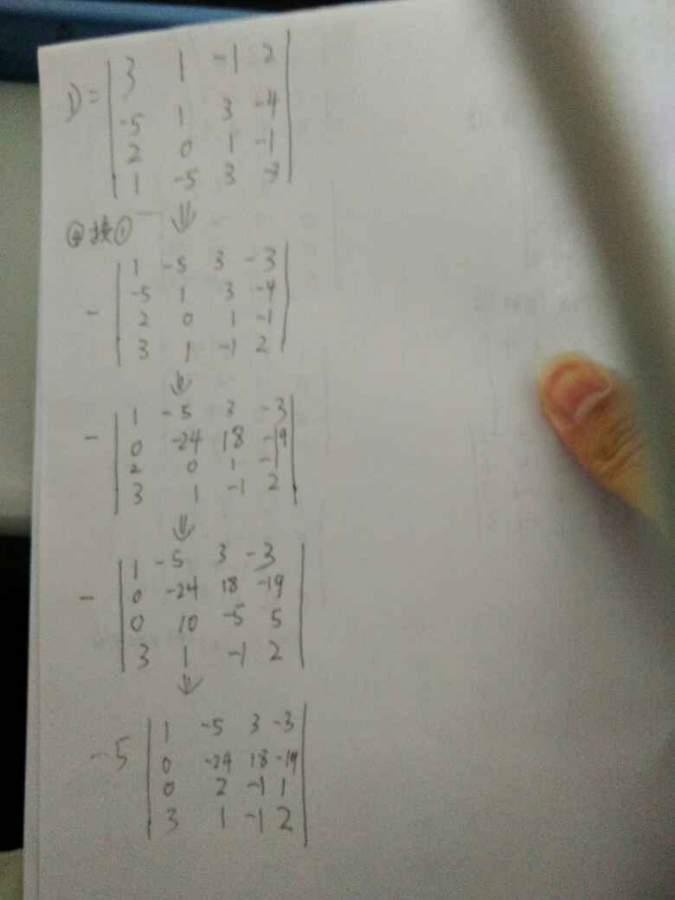 D = | 3 1 -1 2 |
| -5 1 3 -4 |
| 2 0 1 -1 |
| 1 -5 3 -3 |
⇓
④换①
| 1 -5 3 -3 |
| -5 1 3 -4 |
- | 2 0 1 -1 |
| 3 1 -1 2 |
⇓
| 1 -5 3 -3 |
- | 0 -24 18 -19 |
| 2 0 1 -1 |
| 3 1 -1 2 |
⇓
| 1 -5 3 -3 |
- | 0 -24 18 -19 |
| 0 10 -5 5 |
| 3 1 -1 2 |
⇓
| 1 -5 3 -3 |
-5 | 0 -24 18 -19 |
| 0 2 -1 1 |
| 3 1 -1 2 |